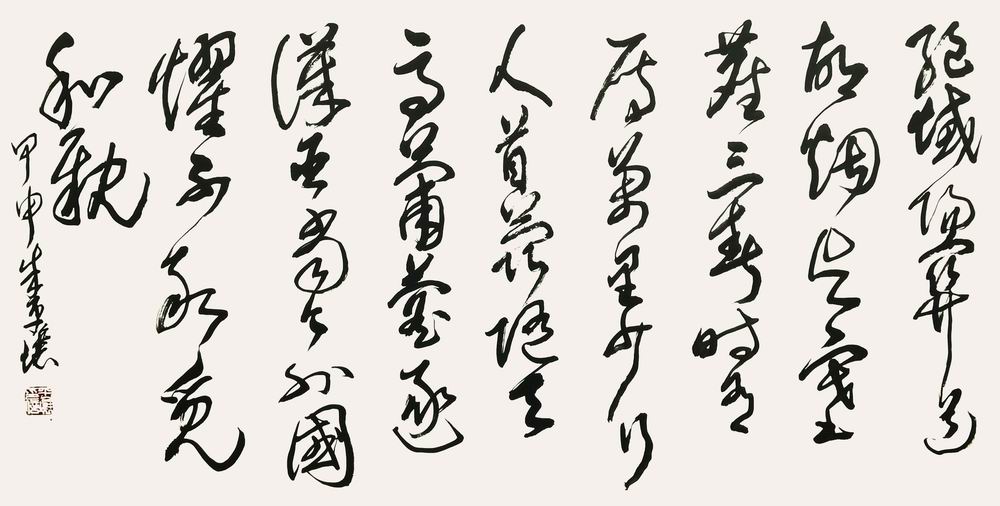 絕域陽關道
胡烟與塞
塵三春時有
雁萬里少行
人苜蓿隨天
馬葡萄逐
漢臣當令外國
懼不敢覓
和親
甲申朱